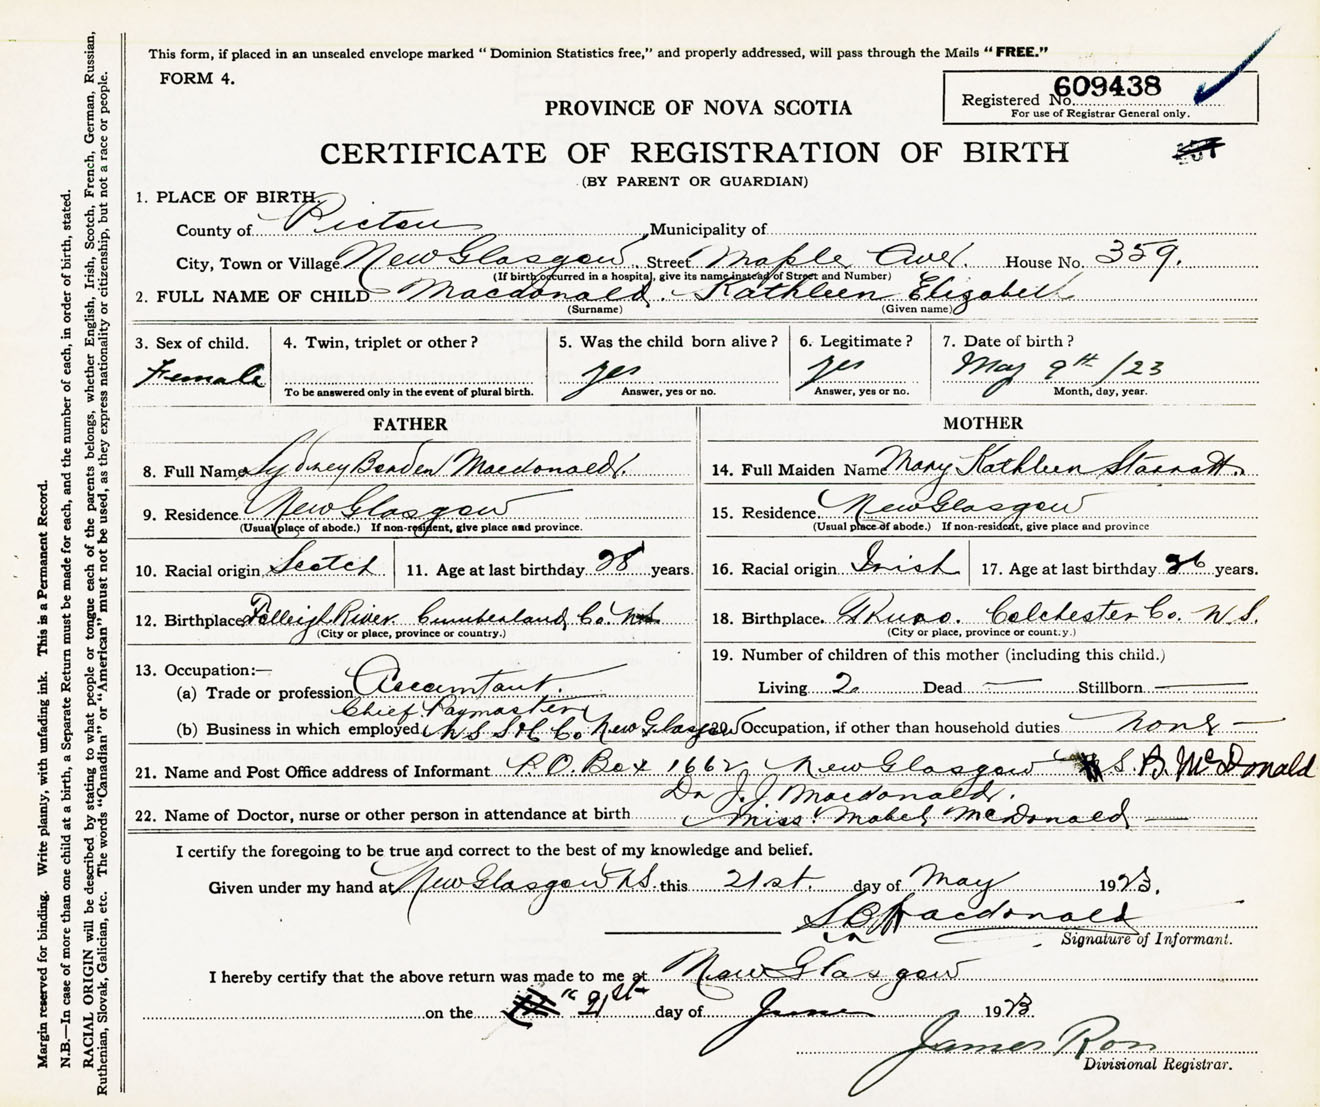 This form, if placed in an unsealed envelope marked "Dominion Statistics free," and properly addressed, will pass through the Mails "FREE."
FORM 4.
Registered No. 609438
For use of Registrar General only.
PROVINCE OF NOVA SCOTIA
CERTIFICATE OF REGISTRATION OF BIRTH
(BY PARENT OR GUARDIAN)
1. PLACE OF BIRTH.
County of Pictou Municipality of
City, Town or Village New Glasgow Street Maple Ave. House No. 359.
(If birth occurred in a hospital, give its name instead of Street and Number)
2. FULL NAME OF CHILD Macdonald. Kathleen Elizabeth
(Surname) (Given name)
3. Sex of child. 4. Twin, triplet or other? 5. Was the child born alive? 6. Legitimate? 7. Date of birth?
Female yes yes May 9th /23
To be answered only in the event of plural birth. Answer, yes or no. Answer, yes or no. Month, day, year.
FATHER
8. Full Name Sydney Borden Macdonald.
9. Residence New Glasgow
(Usual place of abode.) If non-resident, give place and province.
10. Racial origin Scotch 11. Age at last birthday 28 years.
12. Birthplace River Cumberland Co. N.S.
(City or place, province or country.)
13. Occupation:—
(a) Trade or profession Accountant.
Chief Paymaster
(b) Business in which employed N S S & C Co New Glasgow
MOTHER
14. Full Maiden Name Mary Kathleen Starratt.
15. Residence. New Glasgow
(Usual place of abode.) If non-resident, give place and province
16. Racial origin Irish 17. Age at last birthday 26 years.
18. Birthplace. Truro. Colchester Co. N.S.
(City or place, province or county.)
19. Number of children of this mother (including this child.)
Living 2. Dead — Stillborn —
20. Occupation, if other than household duties None —
21. Name and Post Office address of Informant P.O. Box 1662 New Glasgow S. B. McDonald
Dr J. J. Macdonald.
22. Name of Doctor, nurse or other person in attendance at birth Miss Mabel McDonald —
I certify the foregoing to be true and correct to the best of my knowledge and belief.
Given under my hand at New Glasgow N.S. this 21st. day of May 1923.
S B Macdonald
Signature of Informant.
I hereby certify that the above return was made to me at New Glasgow
on the "21st day of June 1923
James Ross
Divisional Registrar.
Margin reserved for binding. Write plainly, with unfading ink. This is a Permanent Record.
N.B.—In case of more than one child at a birth, a Separate Return must be made for each, and the number of each, in order of birth, stated.
RACIAL ORIGIN will be described by stating to what people or tongue each of the parents belongs, whether English, Irish, Scotch, French, German, Russian,
Ruthenian, Slovak, Galician, etc. The words "Canadian" or "American" must not be used, as they express nationality or citizenship, but not a race or people.